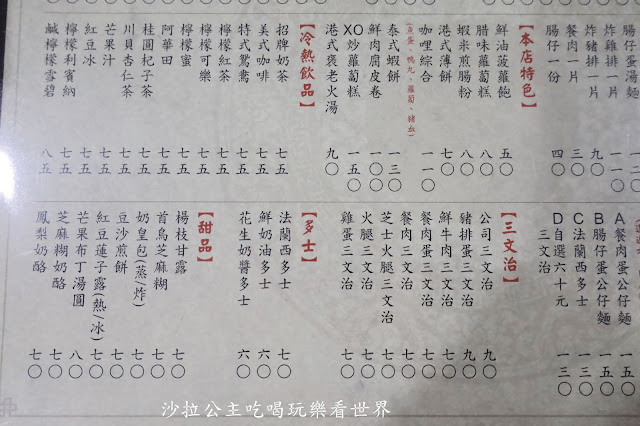 腸仔蛋湯麵 一二〇
炸雞排一片 一一〇
炸豬排一片 九〇
餐肉一片 三〇
腸仔一份 四〇
【本店特色】
鮮油菠蘿飽 五〇
臘味蘿蔔糕 八〇
蝦米煎腸粉 八〇
港式薄餅 七〇
咖哩綜合 一一〇
(魚蛋、鴨丸、蘿蔔、豬血)
泰式蝦餅 一三〇
鮮肉腐皮卷
XO炒蘿蔔糕 一五〇
港式褒老火湯 九〇
【冷熱飲品】
招牌奶茶 七五
美式咖啡 七五
特式鴛鴦 七五
檸檬紅茶 七五
檸檬可樂 七五
檸檬蜜 七五
阿華田 七五
桂圓杞子茶 七五
川貝杏仁茶 七五
芒果汁 七五
紅豆冰 七五
檸檬利賓納 七五
鹹檸檬雪碧 八五
A餐肉蛋公仔麵 一五
B腸仔蛋公仔麵 一五〇
C法蘭西多士 一三〇
D自選六十元三文治 一三〇
【三文治】
公司三文治 九〇
豬排蛋三文治 九〇
鮮牛肉三文治 七〇
餐肉蛋三文治 七〇
餐肉三文治 七〇
芝士火腿三文治 七〇
火腿三文治 七〇
雞蛋三文治 七〇
【多士】
法蘭西多士 七〇
鮮奶油多士 六〇
花生奶醬多士 六〇
【甜品】
楊枝甘露 七〇
首烏芝麻糊 七〇
奶皇包(蒸/炸) 七〇
豆沙煎餅 七〇
紅豆蓮子露(熱/冰) 七〇
芒果布丁湯圓 八〇
芝麻糊奶酪 七〇
鳳梨奶酪 七〇
沙拉公主吃喝玩樂看世界